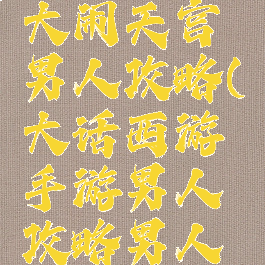 大闹天宫
男人攻略(
大话西游
手游男人
攻略男人